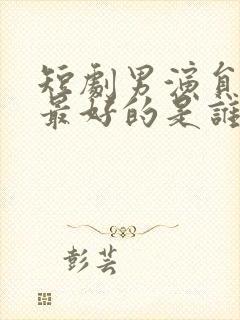 短劇男演員
最好的是誰
彭芸